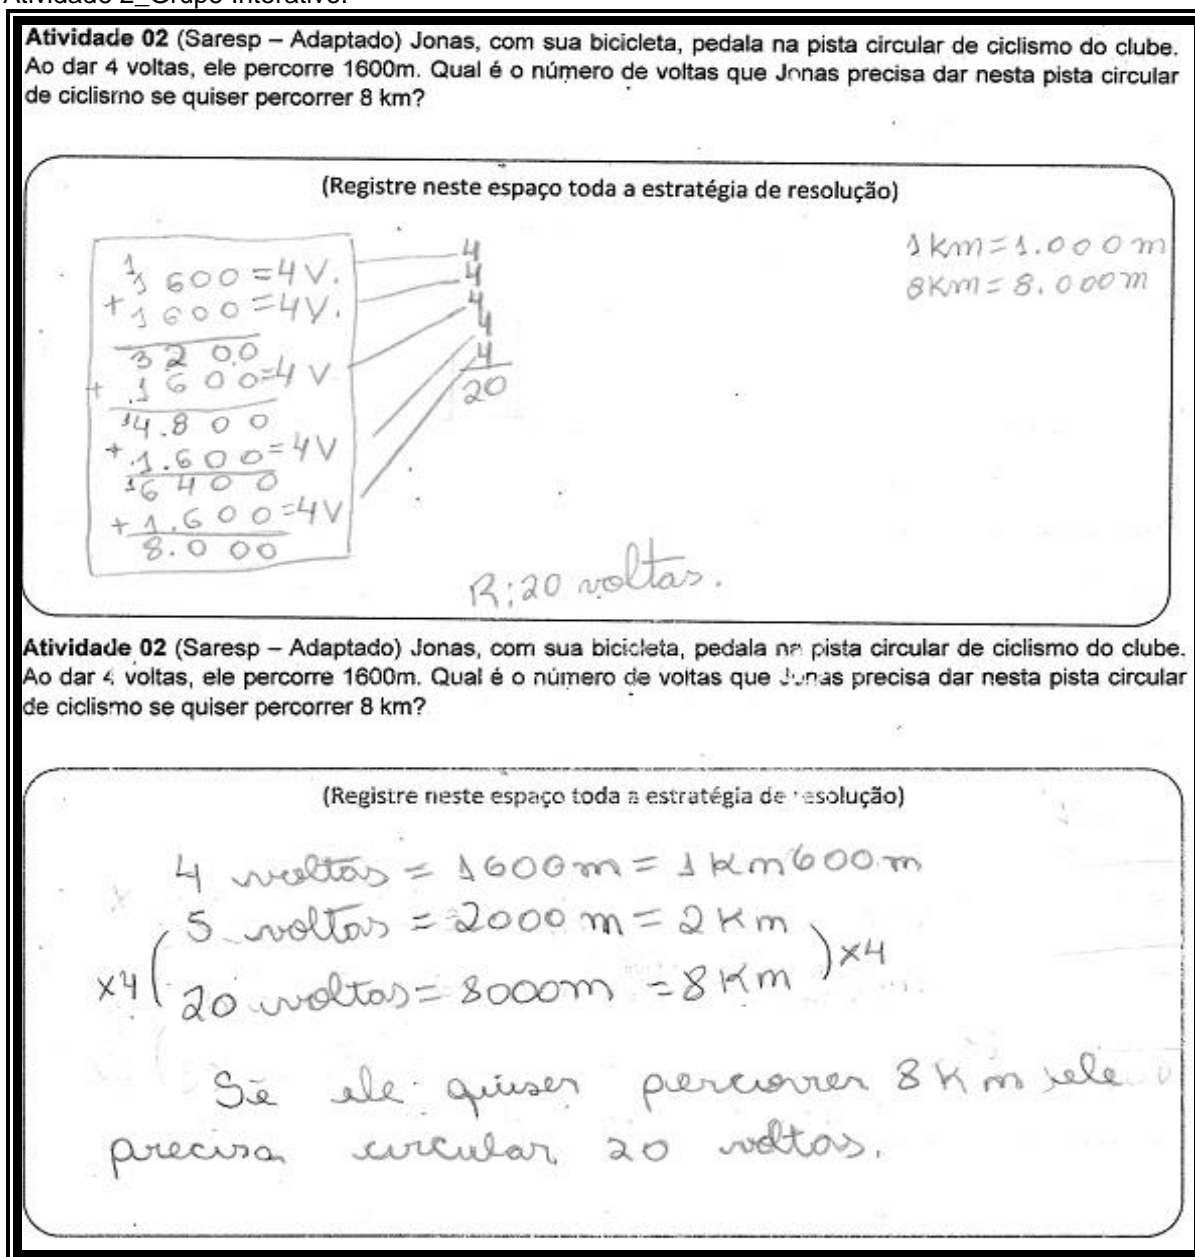 Atividade 2_Grupo Interativo.
Atividade 02 (Saresp – Adaptado) Jonas, com sua bicicleta, pedala na pista circular de ciclismo do clube.
Ao dar 4 voltas, ele percorre 1600m. Qual é o número de voltas que Jonas precisa dar nesta pista circular
de ciclismo se quiser percorrer 8 km?
(Registre neste espaço toda a estratégia de resolução)
1
1600=4V.
+1600=4V.
3200
+1600=4V
1
4.800
+1.600=4V
1
6400
+1.600=4V
8.000
4
4
4
4
4
20
1km=1.000m
8Km=8.000m
R:20 voltas.
Atividade 02 (Saresp – Adaptado) Jonas, com sua bicicleta, pedala na pista circular de ciclismo do clube.
Ao dar 4 voltas, ele percorre 1600m. Qual é o número de voltas que Jonas precisa dar nesta pista circular
de ciclismo se quiser percorrer 8 km?
(Registre neste espaço toda a estratégia de resolução)
4 voltas = 1600m = 1Km600m
5 voltas = 2000m = 2Km
x4 ( 20 voltas = 8000m = 8Km ) x4
Se ele quiser percorrer 8Km ele
precisa circular 20 voltas.